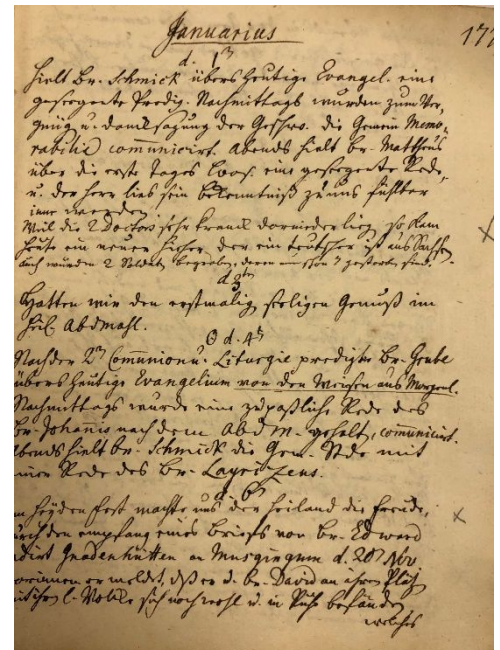 Januarius 177
d. 1ten
hielt Br. Schmick übers heutige Evangel. eine
gesegnete Predig. Nachmittags wurden zum Ver-
gnüg u. Danksagung der Geschw. die Gemein Memo-
rabilia communicirt. Abends hielt Br. Matthäus
über die erste Tages Loos. eine gesegnete Rede,
u. der Herr lies sein bekenntniß zu uns fühlbar
inne werden.
Weil die 2 Doctors sehr krank darnieder lieg. so kam
heute ein neuer hieher, der ein teutscher ist aus Sachsen
auch wurden 2 Soldaten begraben, deren nun schon 7 gestorben sind.
d 3ten
Hatten wir den erstmalig seeligen Genuß im
heil. Abdmahl.
d. 4ten
Nach der 2ten Communion u. Liturgie predigte Br. Grube
übers heutige Evangelium von den Weisen aus Morgenl.
Nachmittags wurde eine Rede des
Br. Johannis nach dem Abdm. gehalt, communicirt.
Abends hielt Br. Schmick die Gem. Stde mit
einer Rede des Br. Layriz ens.
d 6ten
m Heyden Fest machte uns der Heiland die Freude,
durch den empfang eines Briefs von Br. Edward
Gnadenhütten an Musgingum d. 20t Nov
worinnen er meldt, dß er u. Br. David an ihren Pläz
mit ihrn l. Volkle sich noch wohl u. in Ruh befänden,
welches